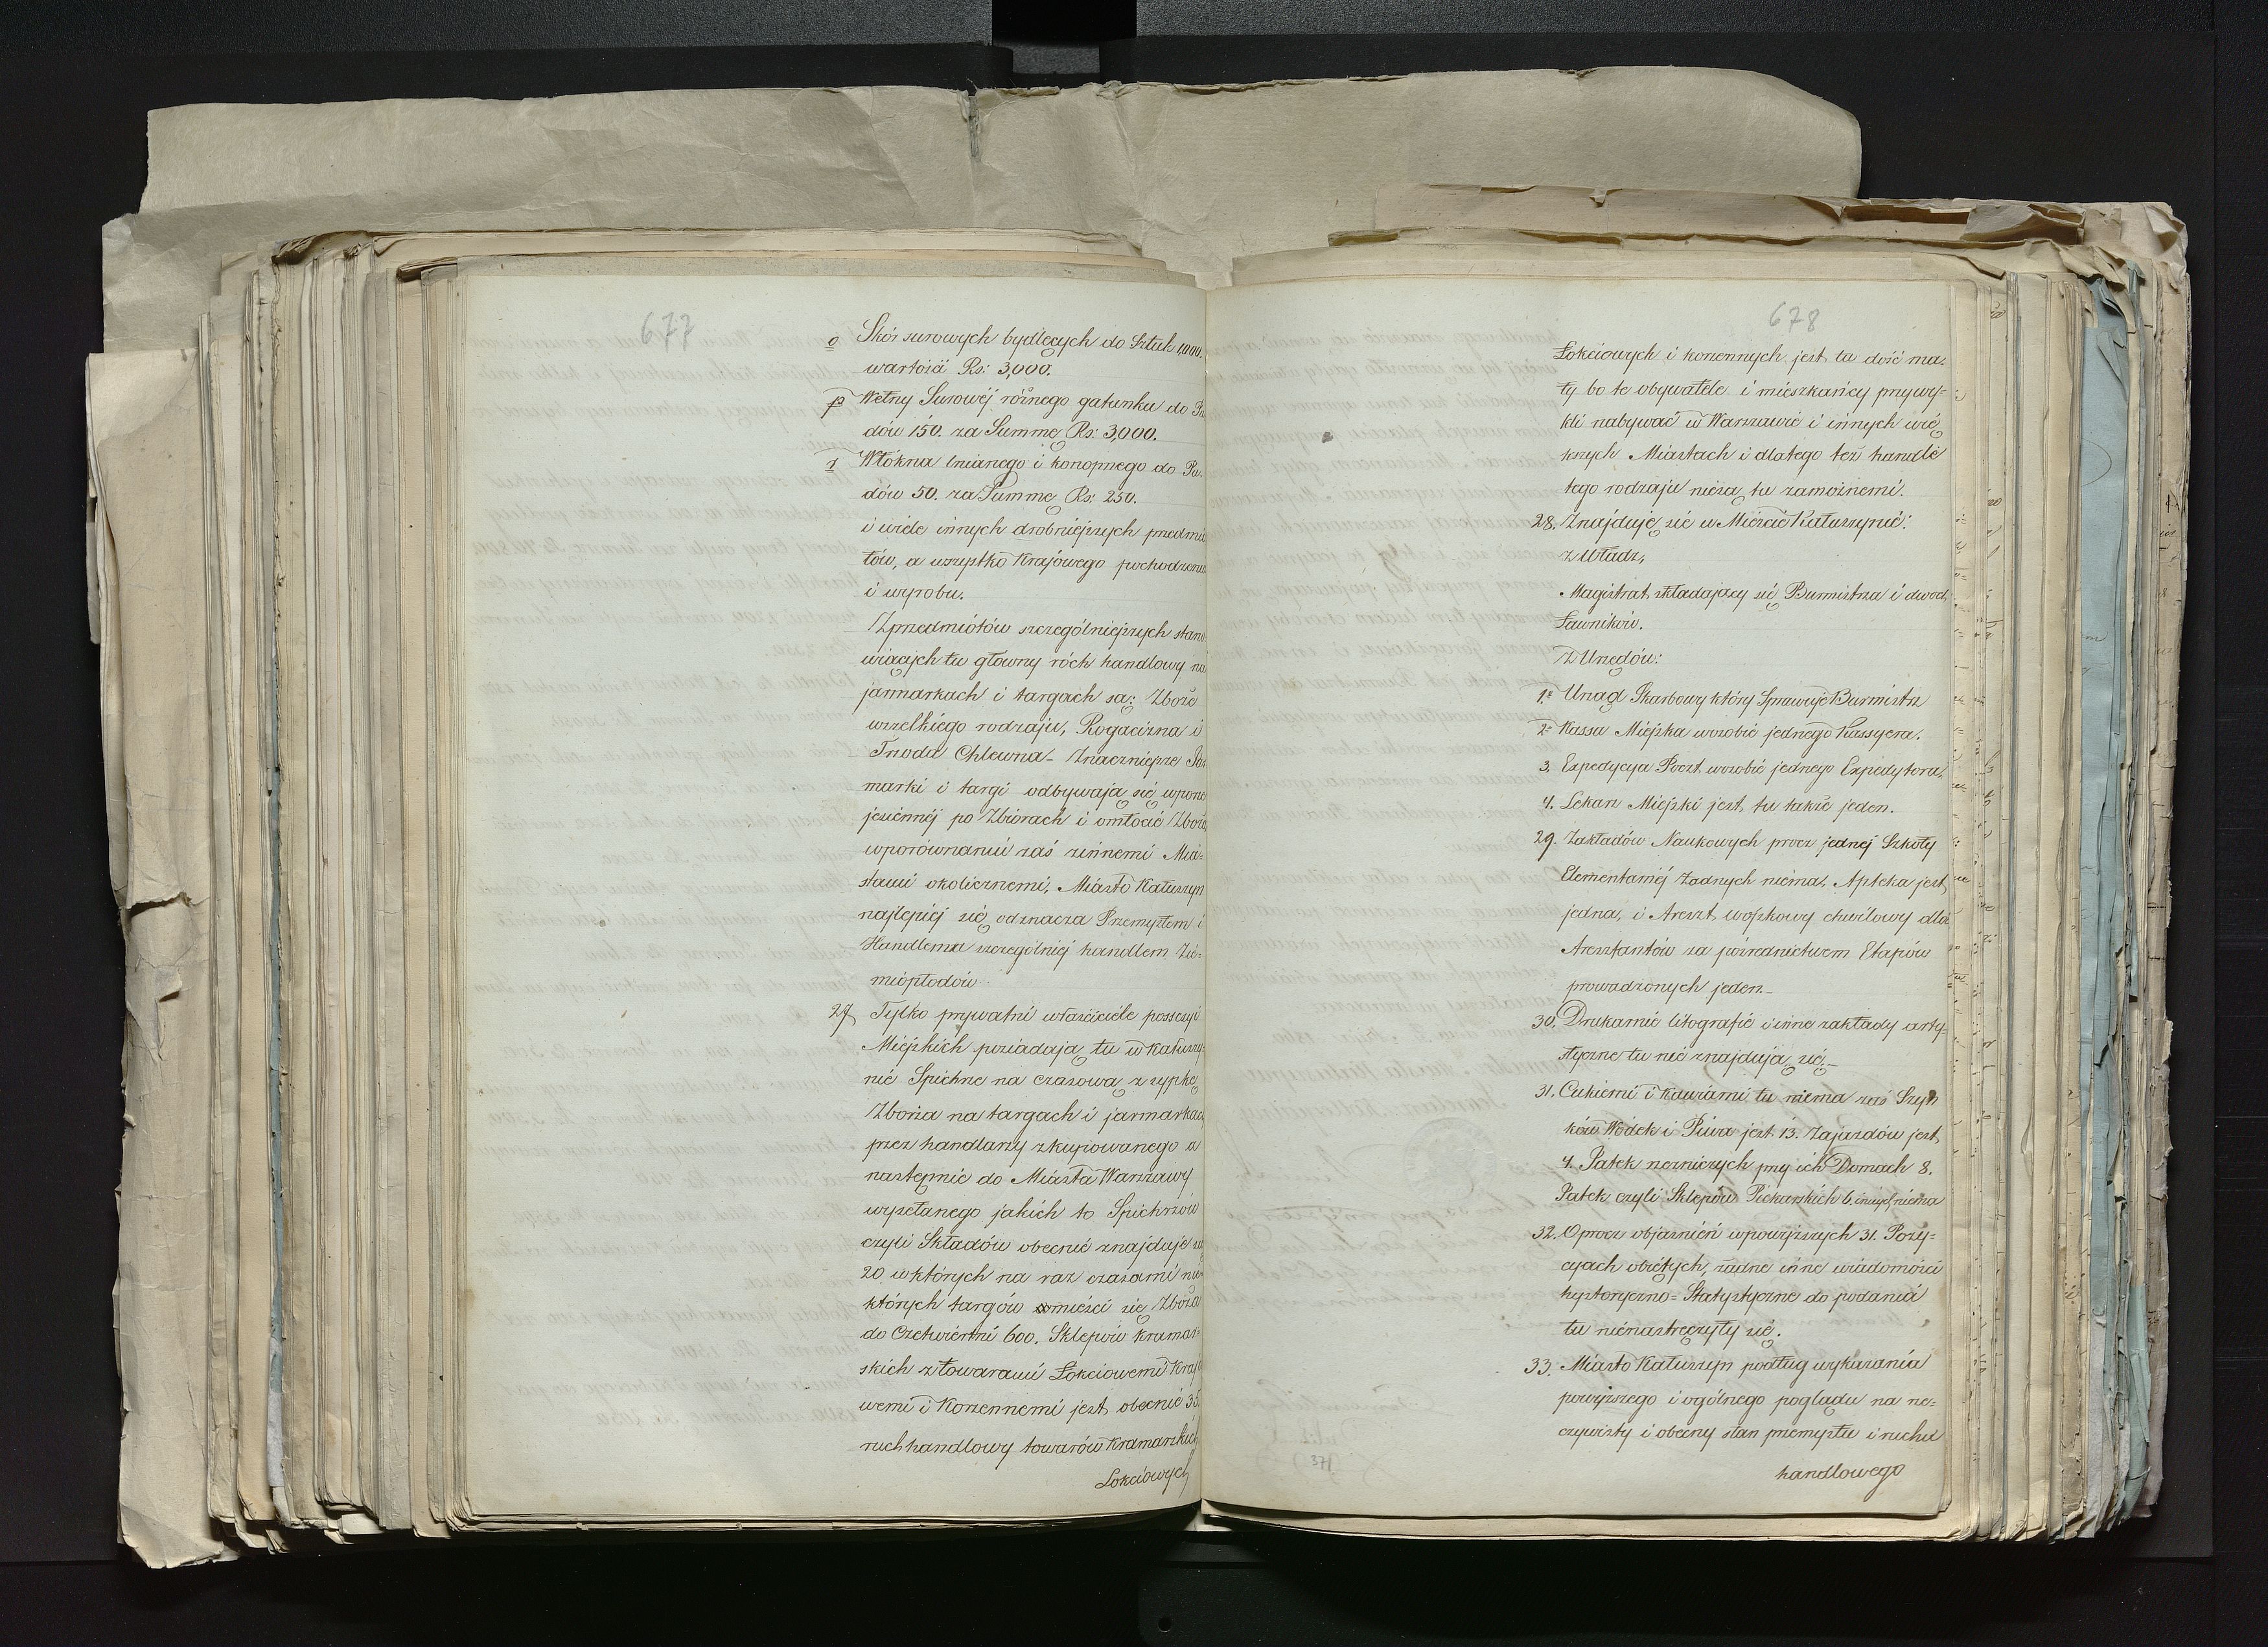 677
o Skór surowych bydlęcych do Sztuk 1,000.
wartości Rs: 3,000.
p Wełny Surowéj różnego gatunku do Pu
dów 150. za Summę Rs: 3,000.
r Włókna lnianego i konopnego do Pu-
dów 50. za Summę Rs: 250.
i wiele innych drobniejszych przedmio
tów, a wszystko Krajowego pochodzenia
i wyrobu.
Z przedmiotów szczególniejszych stano
wiących tu głowny róch handlowy na
jarmarkach i targach są: Zboże
wszelkiego rodzaju, Rogacizna i
Trzoda Chlewna – Znaczniejsze Jar
marki i targi odbywają się w porze
jesiennéj po Zbiorach i omłocie Zboża
w porównaniu zaś z innemi Mia-
stami okolicznemi, Miasto Kałuszyn
najlepiéj się odznacza Przemysłem i
Handlem a szczególniéj handlem Zie-
miopłodów
27, Tylko prywatni właściciele possessyi
Miejskich posiadają tu w Kałuszy-
nie Spichrze na czasową zsypkę
Zboża na targach i jarmarkach
przez handlarzy zkupowanego a
następnie do Miasta Warszawy
wysełanego jakich to Spichrzów
czyli Składów obecnie znajduje się
20 w których na raz czasami nie-
których targów mieści się Zboża
do Czetwierni 600. Sklepów kramar-
skich z towarami Łokciowemi Krajo
wemi i Korzennemi jest obecnie 35.
ruch handlowy towarów Kramarskich
Łokciowych
678
Łokciowych i korzennych jest tu dość ma-
ły bo te obywatele i mieszkańcy przywy-
kli nabywać w Warszawie i innych wię
kszych Miastach i dlatego też handle
tego rodzaju niesą tu zamożnemi.
28. Znajduje się w Mieście Kałuszynie:
z Władz,
Magistrat składający się Burmistrza i dwóch
Ławników.
Z Urzędów:
1. Urząd Skarbowy który Sprawuje Burmistrz
2. Kassa Miejska w osobie jednego Kassyera.
3. Expedycya Poczt. w osobie jednego Expedytora.
4. Lekarz Miejski jest tu także jeden.
29. Zakładów Naukowych procz jednej Szkoły
Elementarnéj żadnych niema, Apteka jest
jedna, i Areszt wojskowy chwilowy dla
Aresztantów za pośrednictwem Etapów
prowadzonych jeden.–
30. Drukarnie litografie i inne zakłady arty-
styczne tu nie znajdują się.–
31. Cukierni i Kawiarni tu niema zaś Szyn
ków Wódek i Piwa jest 13. Zajazdów jest
4. Jatek rzezniczych przy ich Domach 8.
Jatek czyli Sklepów Piekarskich 6. innych niema
32. Oprocz objaśnień w powyższych 31. Pozy-
cyach objętych, żadne inne wiadomości
hystoryczno-Statystyczne do podania
tu nienastręczyły się.
33. Miasto Kałuszyn podług wykazania
powyższego i ogólnego poglądu na rze-
czywisty i obecny stan przemysłu i ruchu
handlowego
371